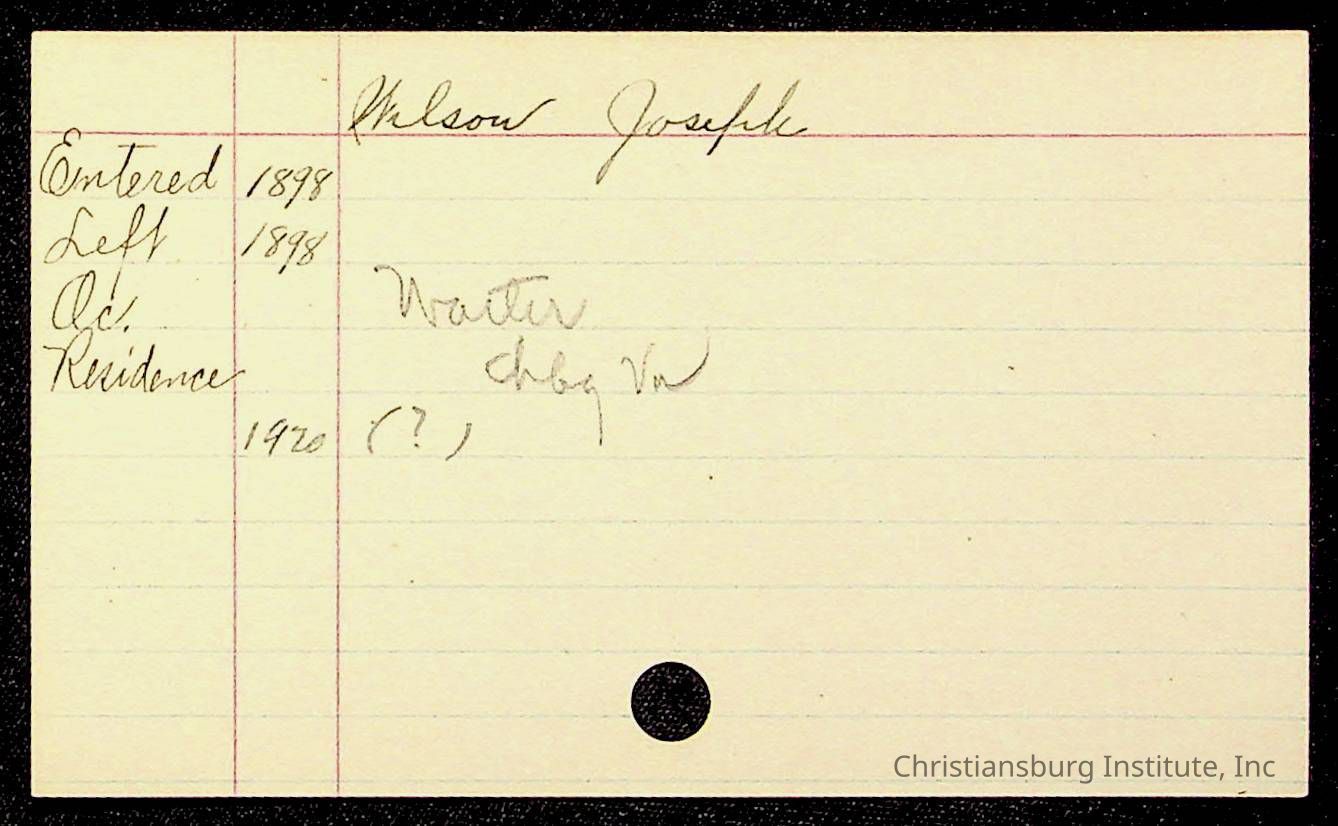 Wilson Joseph
Entered 1898
Left 1898
Oc. Waiter
Residence Chbg Va
1920 (?)
Christiansburg Institute, Inc